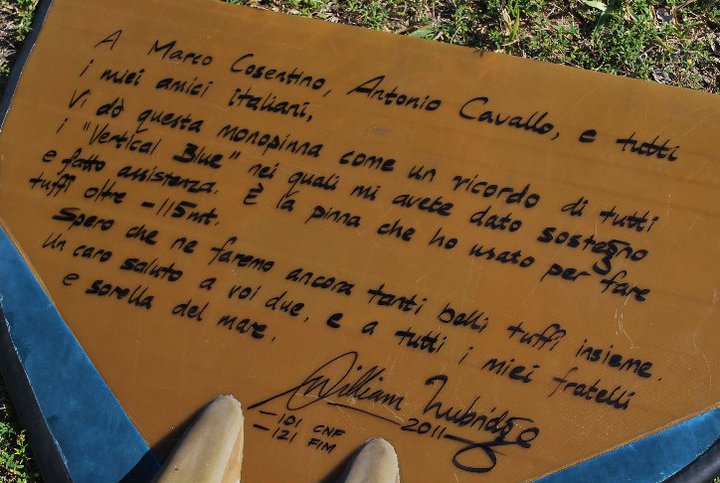 A Marco Cosentino, Antonio Cavallo, e tutti
i miei amici italiani,
Vi dò questa monopinna come un ricordo di tutti
i "Vertical Blue" nei quali mi avete dato sostegno
e fatto assistenza. È la pinna che ho usato per fare
tuffi oltre -115mt.
Spero che ne faremo ancora tanti belli tuffi insieme.
Un caro saluto a voi due, e a tutti i miei fratelli
e sorella del mare.
William Trubridge
-101 CNF 2011
-121 FIM